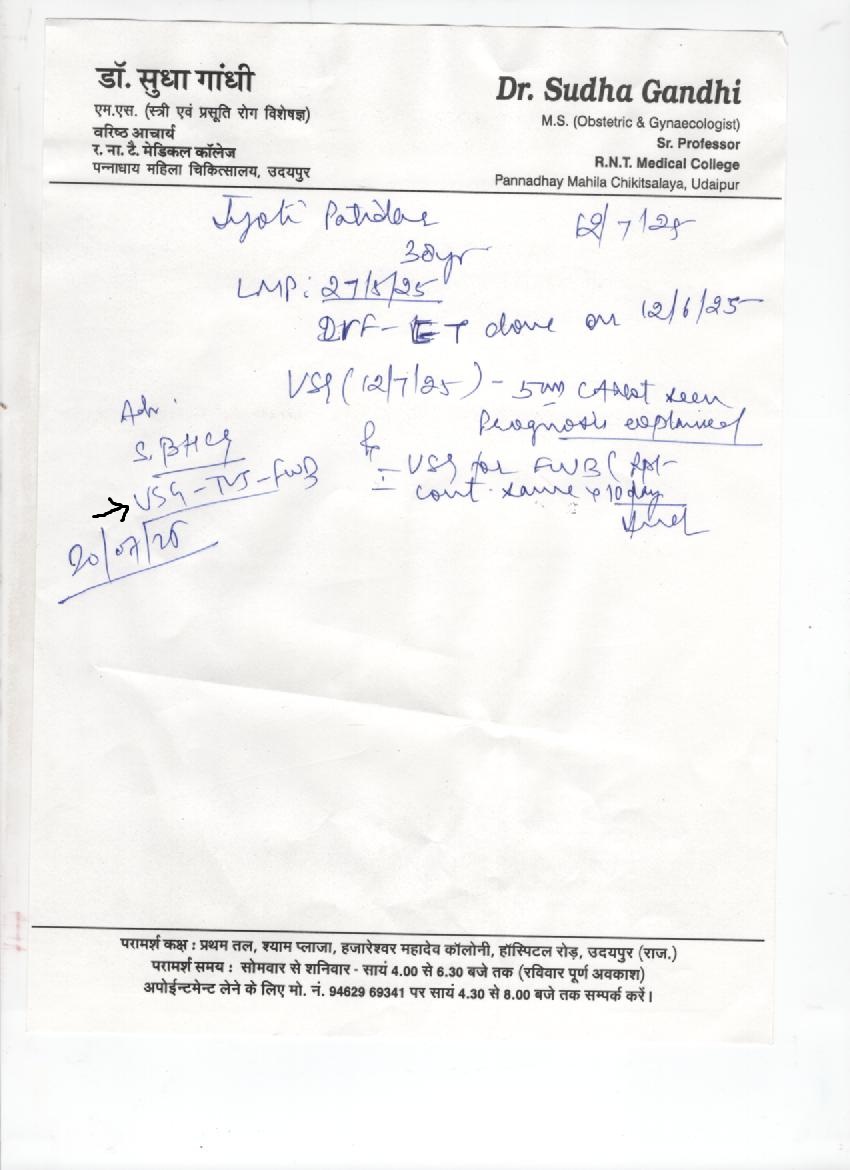 डॉ. सुधा गांधी
एम.एस. (स्त्री एवं प्रसूति रोग विशेषज्ञ)
वरिष्ठ आचार्य
र. ना. टै. मेडिकल कॉलेज
पन्नाधाय महिला चिकित्सालय, उदयपुर
Dr. Sudha Gandhi
M.S. (Obstetric & Gynaecologist)
Sr. Professor
R.N.T. Medical College
Pannadhay Mahila Chikitsalaya, Udaipur
Jyoti Patidar 12/7/25
30yr
LMP: 27/5/25
IVF - ET done on 12/6/25
USG (12/7/25) - 5 seen
Prognosis explained
Adv.
S. BHCG
USG-TVS-FWB
20/07/25
- USG for FWB
cont. same x 10 day
परामर्श कक्ष : प्रथम तल, श्याम प्लाजा, हजारेश्वर महादेव कॉलोनी, हॉस्पिटल रोड़, उदयपुर (राज.)
परामर्श समय : सोमवार से शनिवार - सायं 4.00 से 6.30 बजे तक (रविवार पूर्ण अवकाश)
अपोईन्टमेन्ट लेने के लिए मो. नं. 94629 69341 पर सायं 4.30 से 8.00 बजे तक सम्पर्क करें।